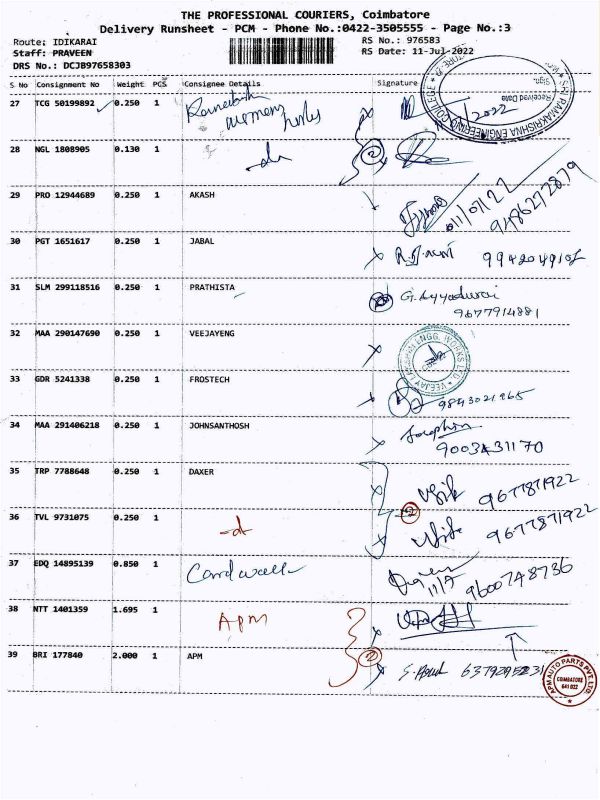 THE PROFESSIONAL COURIERS, Coimbatore
Delivery Runsheet - PCM - Phone No.:0422-3505555 - Page No.:3
Route: IDIKARAI
Staff: PRAVEEN
DRS No.: DCJB97658303
RS No.: 976583
RS Date: 11-Jul-2022
S No Consignment No Weight PCS Consignee Details Signature
27 TCG 50199892 0.250 1 women's
/2022
SRI RAMAKRISHNA ENGINEERING COLLEGE
Received Date
Sign.
28 NGL 1808905 0.130 1 2
29 PRO 12944689 0.250 1 AKASH 011/07/22 9486272879
30 PGT 1651617 0.250 1 JABAL
31 SLM 299118516 0.250 1 PRATHISTA G. Ayyadurai
9677914881
32 MAA 290147690 0.250 1 VEEJAYENG
VEEJAY LAKSHMI ENGG. WORKS LTD
33 GDR 5241338 0.250 1 FROSTECH
34 MAA 291406218 0.250 1 JOHNSANTHOSH Josephin
9003431170
35 TRP 7788648 0.250 1 DAXER 9677871922
36 TVL 9731075 0.250 1 2 9677871922
37 EDQ 14895139 0.850 1 Cardwell 11/7 9600748736
38 NTT 1401359 1.695 1 Apm
39 BRI 177840 2.000 1 APM 2
APM AUTO PARTS PVT. LTD.
COIMBATORE
641 022